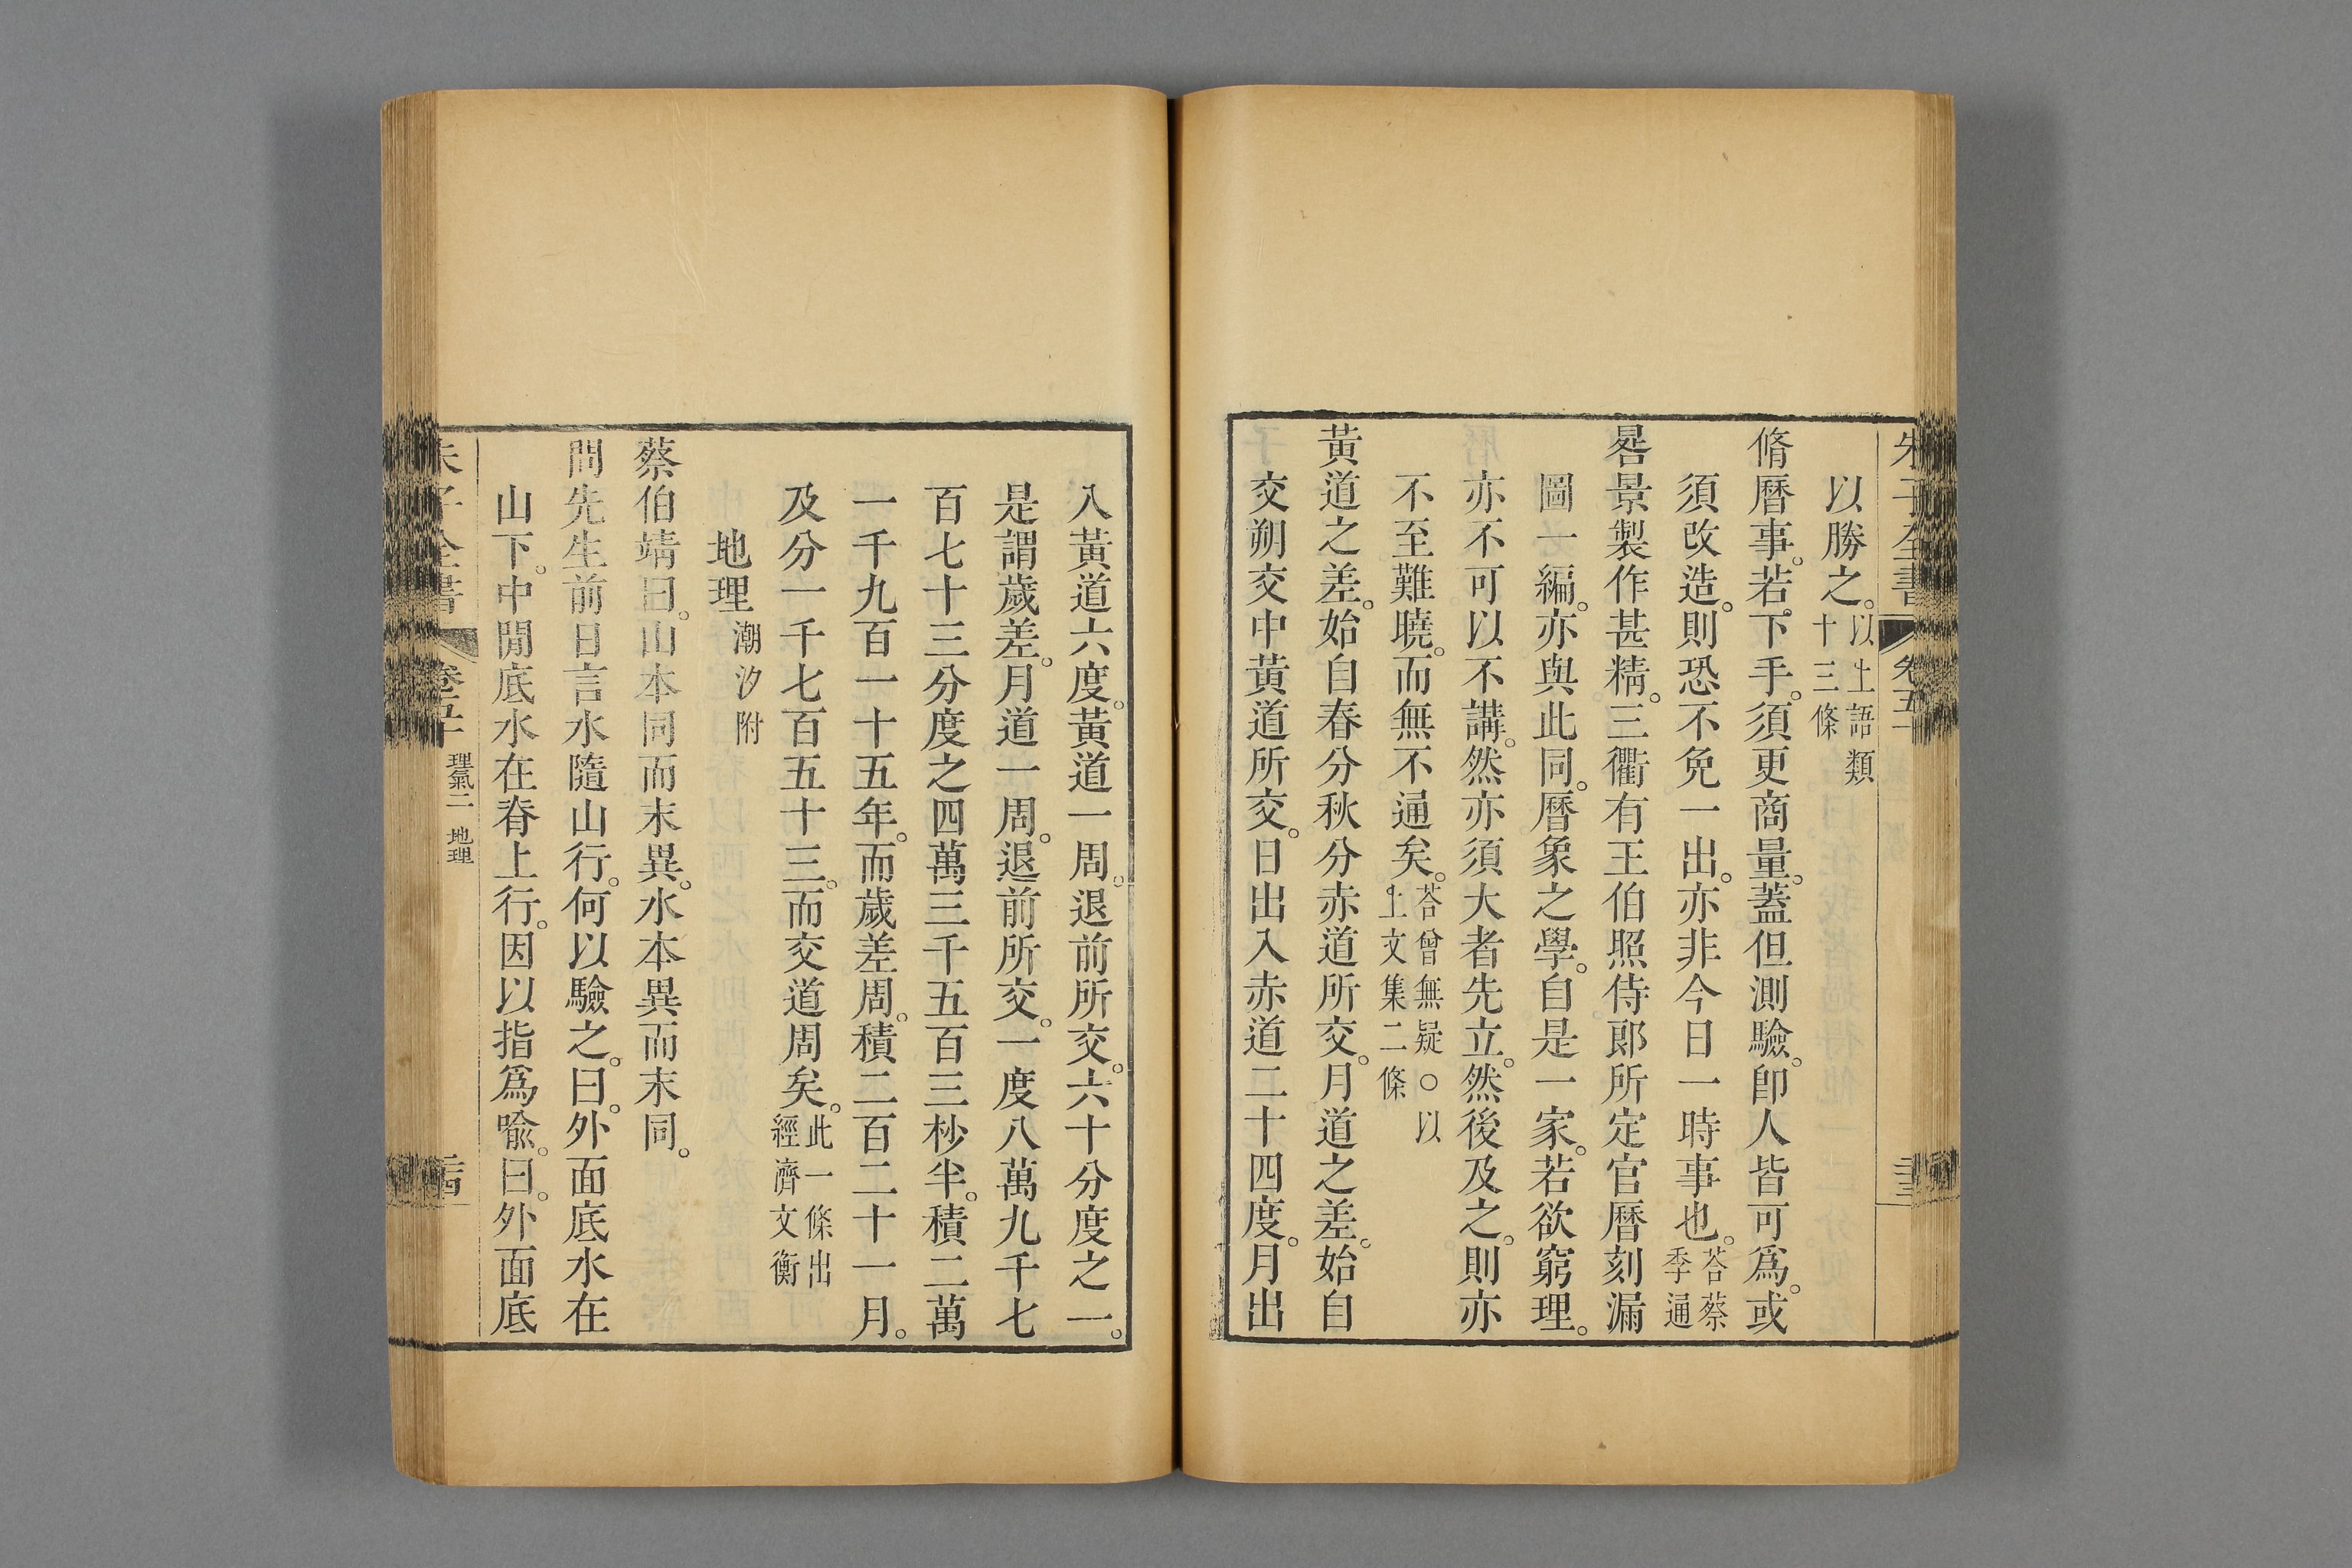 朱子全書 卷五十 三三
以勝之。以上語類十三條
脩曆事。若下手。須更商量。蓋但測驗。卽人皆可爲。或
須改造。則恐不免一出。亦非今日一時事也。荅蔡季通
晷景製作甚精。三衢有王伯照侍郎所定官曆刻漏
圖一編。亦與此同。曆象之學。自是一家。若欲窮理。
亦不可以不講。然亦須大者先立。然後及之。則亦
不至難曉。而無不通矣。荅曾無疑○以上文集二條
黃道之差。始自春分秋分赤道所交。月道之差。始自
交朔交中黃道所交。日出入赤道二十四度。月出
入黃道六度。黃道一周。退前所交。六十分度之一。
是謂歲差。月道一周。退前所交。一度八萬九千七
百七十三分度之四萬三千五百三杪半。積二萬
一千九百一十五年。而歲差周。積二百二十一月。
及分一千七百五十三。而交道周矣。此一條出經濟文衡
地理 潮汐附
蔡伯靖曰。山本同而末異。水本異而末同。
問先生前日言水隨山行。何以驗之。曰。外面底水在
山下。中閒底水在脊上行。因以指爲喻。曰。外面底
朱子全書 卷五十 理氣二 地理 三四